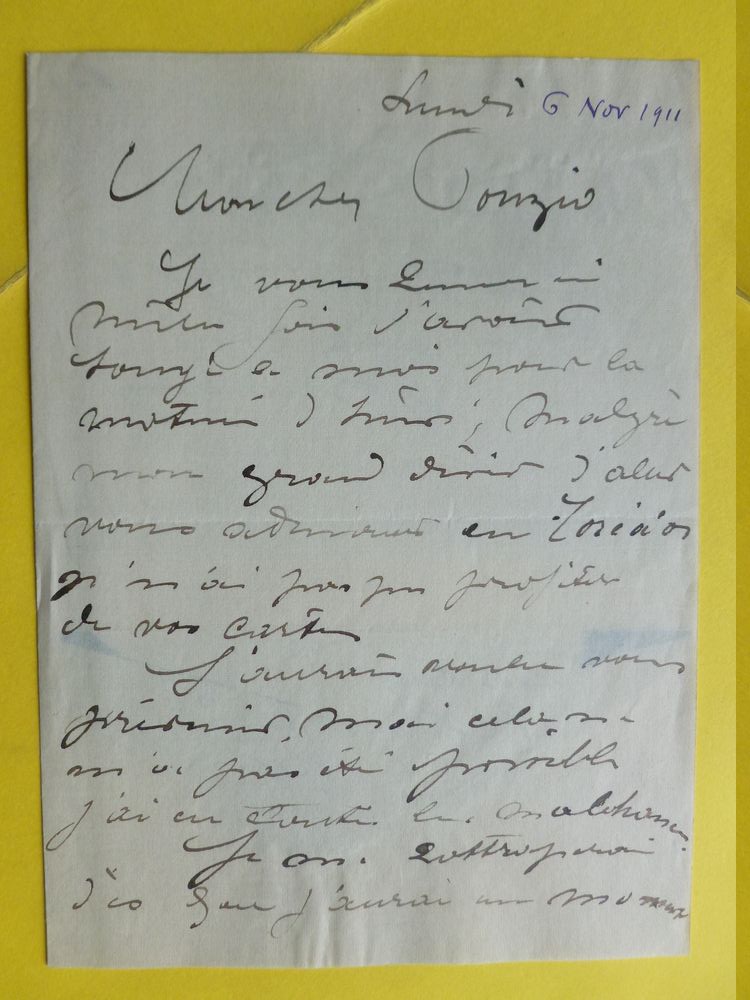 Lundi 6 Nov 1911
Mon cher Gonzio
Je vous remercie
mille fois d'avoir
songé à moi pour la
matiné d'hier ; malgré
mon grand désir d'aller
vous admirer en
je n'ai pas pu profiter
de vos cartes
J'aurais voulu vous
prévenir, mais cela ne
m'a pas été possible
j'ai eu toute la malchance
Je me rattraperai
dès que j'aurai un moment